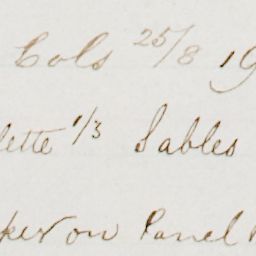 Cols 25/8 19
lette 1/3 Sables
on Panel